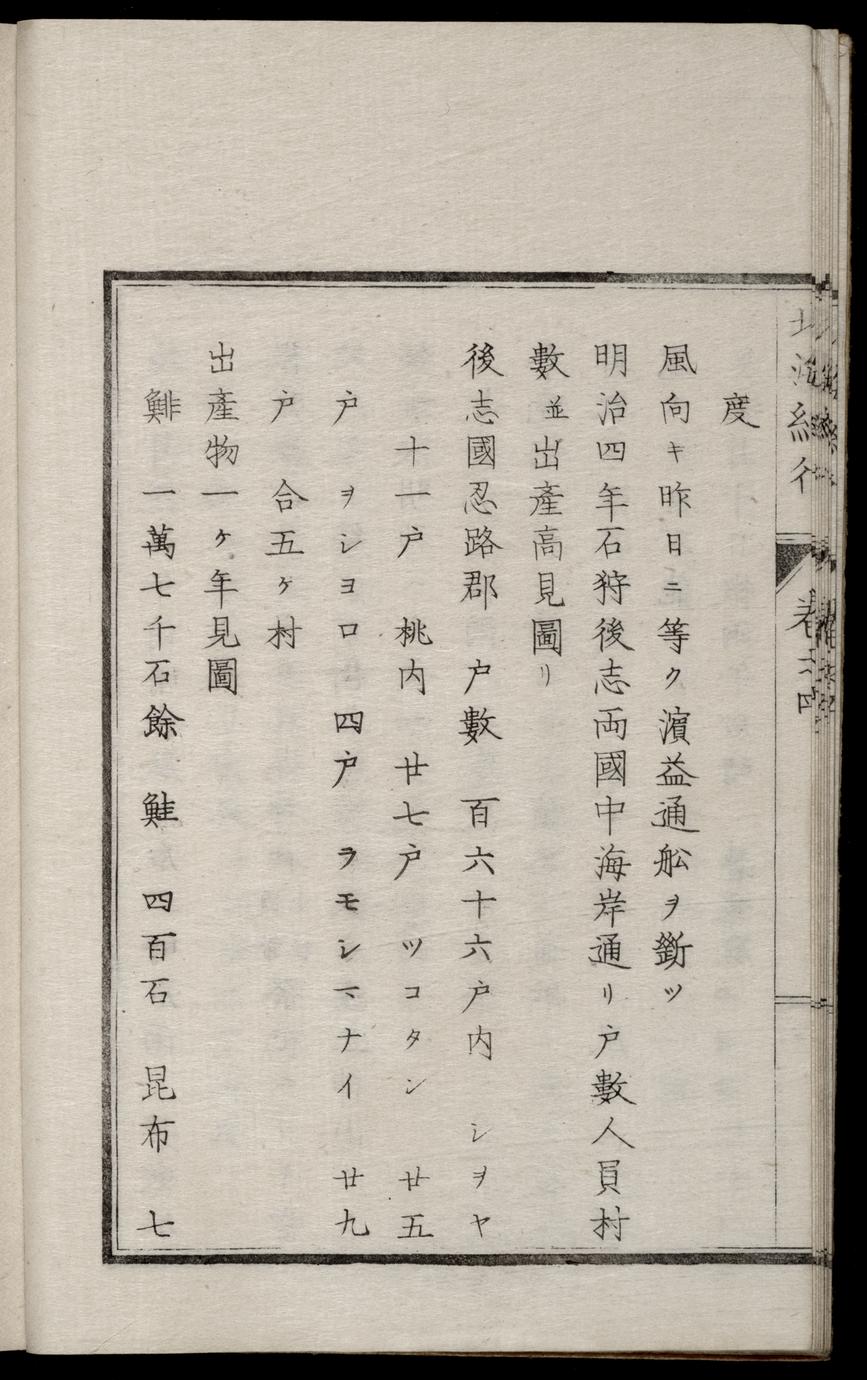 度
風向キ昨日ニ等ク濱益通舩ヲ斷ツ
明治四年石狩後志両國中海岸通リ戸數人員村
數並出產高見圖リ
後志國忍路郡 戸數 百六十六戸内 シヲヤ
十一戸 桃内 廿七戸 ツコタン 廿五
戸 ヲシヨロ 四戸 ラモシマナイ 廿九
戸 合五ケ村
出產物一ケ年見圖
鯡 一萬七千石餘 鮭 四百石 昆布 七